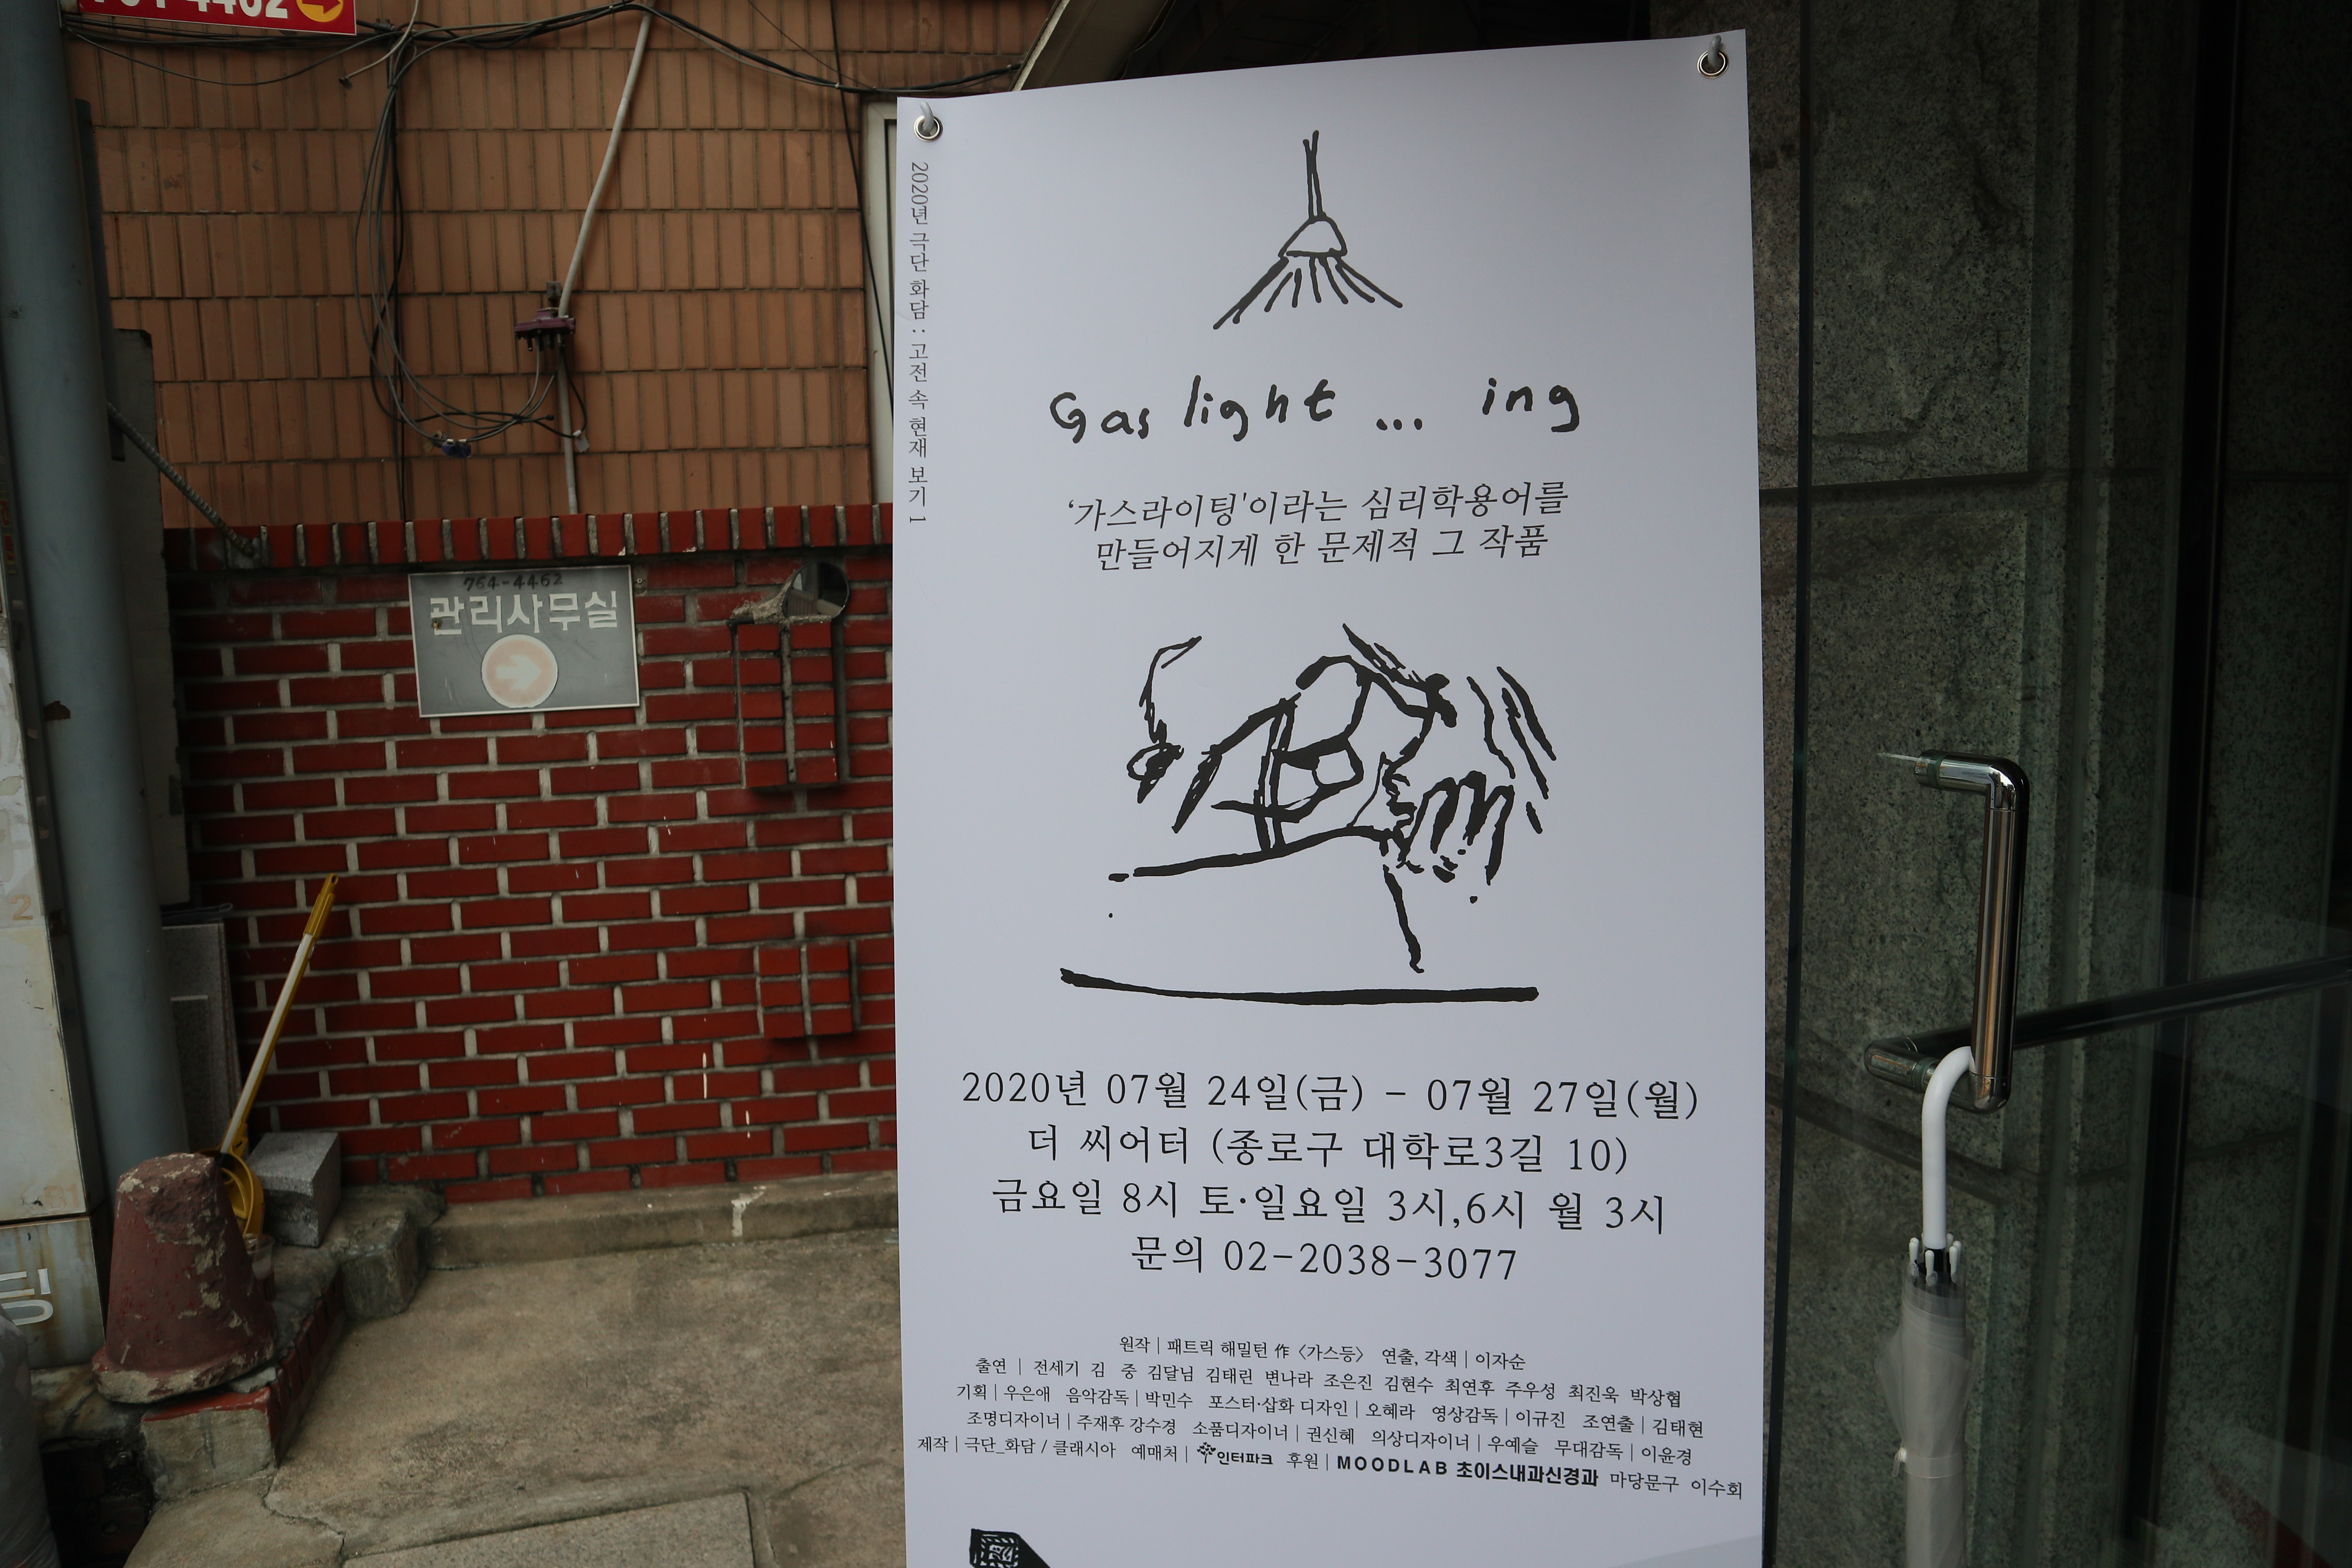 2020년 극단 화담 : 고전 속 현재 보기 1
Gas light ... ing
‘가스라이팅'이라는 심리학용어를
만들어지게 한 문제적 그 작품
764-4462
관리사무실
2020년 07월 24일(금) - 07월 27일(월)
더 씨어터 (종로구 대학로3길 10)
금요일 8시 토·일요일 3시,6시 월 3시
문의 02-2038-3077
원작 | 패트릭 해밀턴 作 〈가스등〉 연출, 각색 | 이자순
출연 | 전세기 김 중 김달님 김태린 변나라 조은진 김현수 최연후 주우성 최진욱 박상협
기획 | 우은애 음악감독 | 박민수 포스터·삽화 디자인 | 오혜라 영상감독 | 이규진 조연출 | 김태현
조명디자이너 | 주재후 강수경 소품디자이너 | 권신혜 의상디자이너 | 우예슬 무대감독 | 이윤경
제작 | 극단_화담 / 클래시아 예매처 | 인터파크 후원 | MOODLAB 초이스내과신경과 마당문구 이수회